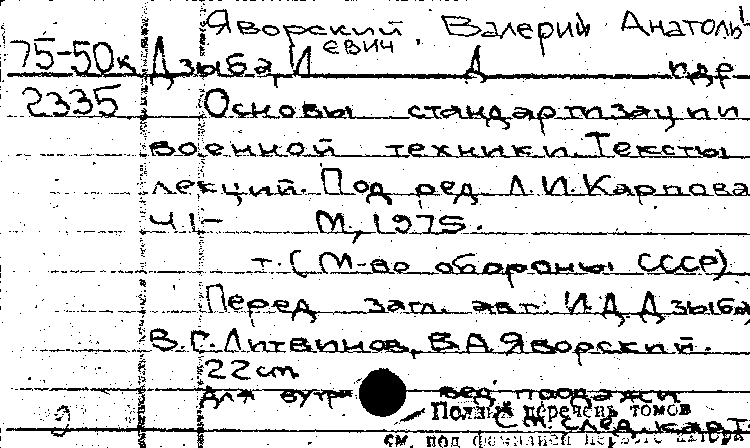 Яворский, Валерий Анатоль
евич
75-50к Дзыба, И Д и др
2335 Основы стандартизации
военной техники. Тексты
лекций. Под ред Л.И.Карпова
Ч 1- М, 1975.
т. (М-во обороны СССР)
Перед загл. авт. И.Д Дзыба,
В.Г. Литвинов, В.А Яворский.
22 cm
Для вутр вед продажи
Полный перечень томов
См. след. карт
см. под фамилией первого автора